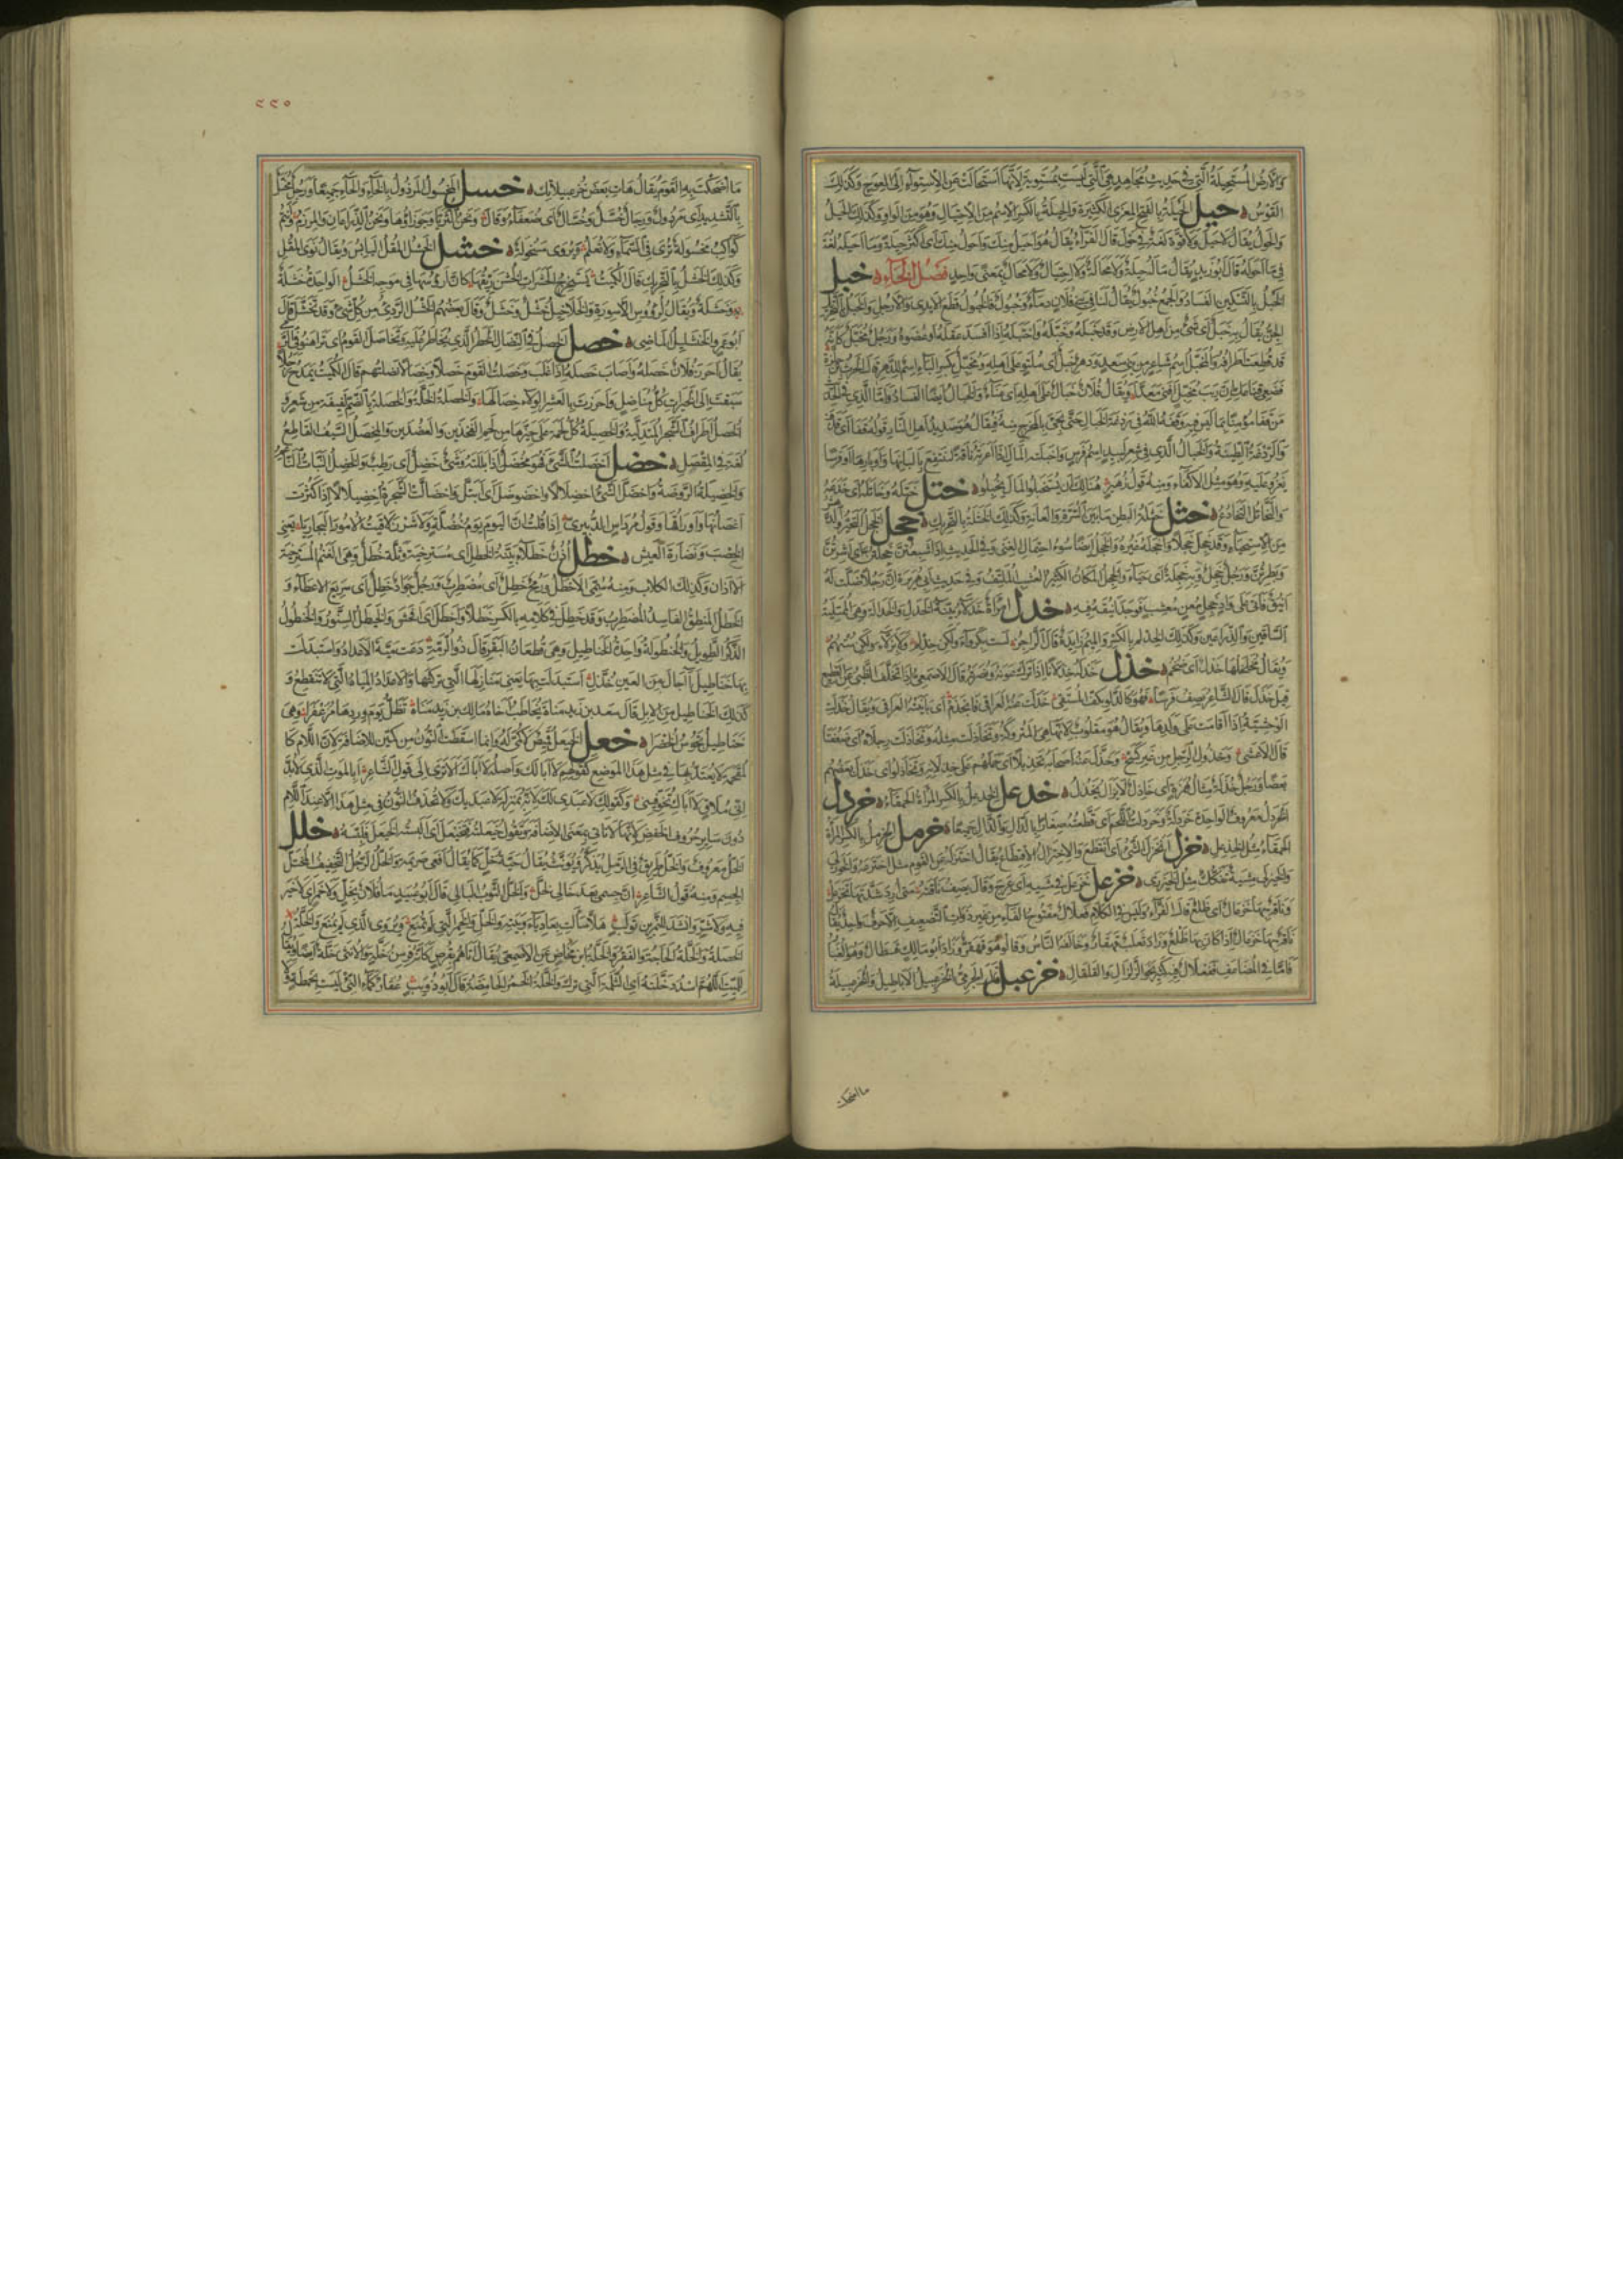 والأرض المستحيلة التي في حديث مجاهد هي التي ليست بمستوية لأنها استحالت عن الاستواء إلى العوج وكذلك
القوس حيل الحيلة بالفتح المعزى الكثيرة والحيلة بالكسر الاسم من الاحتيال وهو من الواو وكذلك الحيل
والحول يقال لا حيل ولا قوة لغة في حول قال الفراء يقال هو أحيل منك وأحول منك أي أكثر حيلة وما أحيله لغة
في ما أحوله قال أبو زيد يقال ما له حيلة ولا محالة ولا احتيال ولا محال بمعنى واحد فصل الخاء خبل
الخبل بالتسكين الفساد والجمع خبول يقال لنا في بني فلان دماء وخبول فالخبول قطع الأيدي والأرجل والخبل بالتحريك
الجن يقال به خبل أي شيء من أهل الأرض وقد خبله وخبله واختبله إذا أفسد عقله أو عضوه ورجل مخبل كأنه
قد قطعت أطرافه والمخبل اسم شاعر من بني سعد ودهر خبل أي ملتو على أهله
ويقال فلان خبال على أهله أي عناء والخبال أيضا الفساد وأما الذي في الحديث
من قفا مؤمنا بما ليس فيه وقفه الله في ردغة الخبال حتى يجيء بالمخرج منه فيقال هو صديد أهل النار قوله قفا أي قذف
والردغة الطينة والخبال الذي في شعر لبيد اسم فرس وأخبلته المال إذا أعرته ناقة لينتفع بألبانها وأوبارها أو فرسا
يغزو عليه وهو مثل الإكفاء ومنه قول زهير هنالك إن يستخبلوا المال يخبلوا ختل ختله وخاتله أي خدعه
والتخاتل التخادع خثل خثلة البطن ما بين السرة والعانة وكذلك الخثلة بالتحريك خجل الخجل التحير والدهش
من الاستحياء وقد خجل خجلا وأخجله غيره والخجل أيضا سوء احتمال الغنى وفي الحديث إذا شبعتن خجلتن أي أشرتن
وبطرتن ورجل خجل وبه خجلة أي حياء والخجل المكان الكثير العشب الملتف وفي حديث أبي هريرة أن رجلا ضلت له
أينق فأتى على واد خجل مغن معشب فوجد أينقه فيه خدل امرأة خدلاء بينة الخدل والخدالة وهي الممتلئة
الساقين والذراعين وكذلك الخدلم بالكسر والميم زائدة قال الراجز ليست بكرواء ولكن خدلم ولا بزلاء ولكن ستهم
ويقال مخلخلها خدل أي ضخم خذل خذله خذلانا إذا ترك عونه ونصرته قال الأصمعي إذا تخلف الظبي عن القطيع
قيل خذل قال الشاعر يصف فرسا فهو كالدلو بكف المستقي خذلت عنه العراقي فانجذم أي باينته العراقي ويقال خذلت
الوحشية إذا أقامت على ولدها ويقال هو مقلوب لأنها هي المتروكة وتخاذلت مثله وتخاذلت رجلاه أي ضعفتا
قال الأعشى وخذول الرجل من غير كسح وخذل عنه أصحابه تخذيلا أي حملهم على خذلانه وتخاذلوا أي خذل بعضهم
بعضا ورجل خذلة مثال همزة أي خاذل لا يزال يخذل خدعل الخدعل بالكسر المرأة الحمقاء خردل
الخردل معروف الواحدة خردلة وخردلت اللحم أي قطعته صغارا بالدال والذال جميعا خرمل الخرمل بالكسر المرأة
الحمقاء مثل الخذعل خزل انخزل الشيء أي انقطع والاختزال الاقتطاع يقال اختزله عن القوم مثل اختزعه والخوزلى
والخيزلى مشية فيها تفكك مثل الخيزرى خزعل خزعل في مشيه أي عرج
وناقة بها خزعال أي ظلع قال الفراء وليس في الكلام فعلال مفتوح الفاء من غير ذوات التضعيف إلا حرف واحد يقال
ناقة بها خزعال إذا كان بها ظلع وزاد ثعلب قهقار وخالفه الناس وقالوا هو قهقر وزاد أبو مالك قسطال وهو الغبار
فأما في المضاعف ففعلال فيه كثير نحو الزلزال والقلقال خزعبل قال الجرمي الخزعبيل الأباطيل والخزعبيلة
ما اضحكت
٢٢٠
ما أضحكت به القوم يقال هات بعض خزعبيلاتك خسل المخسول المرذول بالخاء والحاء جميعا ورجل مخسل
بالتشديد أي مرذول ورجال خسل وخسال أي ضعفاء وقال ونحن الثريا وجوزاؤها ونحن الذراعان والمرزم وأنتم
كواكب مخسولة ترى في السماء ولا تعلم ويروى مسخولة خشل الخشل المقل اليابس ويقال نوى المقل
وكذلك الخشل بالتحريك قال الكميت يستخرج الحشرات الخشن ريقها كأن أرؤسها في موجه الخشل الواحدة خشلة
وخشلة ويقال لرؤوس الأسورة والخلاخيل خشل وخشل وقال بعضهم الخشل الرديء من كل شيء وقد تخشل قال
أبو عمرو الخنشليل الماضي خصل الخصل في النضال الخطر الذي يخاطر عليه وتخاصل القوم أي تراهنوا في الرمي
يقال أحرز فلان خصله وأصاب خصله إذا غلب وخصلت القوم خصلا وخصالا نضلتهم قال الكميت يمدح رجلا
سبقت إلى الخيرات كل مناضل وأحرزت بالعشر الولاء خصالها والخصلة الخلة والخصلة بالضم لفيفة من شعر
الخصل أطراف الشجر المتدلية والخصيلة كل لحمة على حيزها من لحم الفخذين والعضدين والمخصل السيف القاطع
لغة في المقصل خضل أخضلت الشيء فهو مخضل إذا بللته وشيء خضل أي رطب والخضل النبات الناعم
والخضيلة الروضة واخضل الشيء اخضلالا واخضوضل أي ابتل واخضألت الشجرة اخضئلالا إذا كثرت
أغصانها وأوراقها وقول مرداس الدبيري إذا قلت إن اليوم يوم خضلة ولا شرز لاقيت الأمور البجاريا يعني
الخصب ونضارة العيش خطل أذن خطلاء بينة الخطل أي مسترخية وثلة خطل وهي الغنم المسترخية
الآذان وكذلك الكلاب ومنه سمي الأخطل ورمح خطل أي مضطرب ورجل جواد خطل أي سريع الإعطاء و
الخطل المنطق الفاسد المضطرب وقد خطل في كلامه بالكسر خطلا وأخطل أي أفحش والخيطل السنور والخنطول
الذكر الطويل والخنطولة واحدة الخناطيل وهي قطعان البقر قال ذو الرمة دعت مية الأعداد واستبدلت
بها خناطيل آجال من العين خذل استبدلت بها يعني منازلها التي تركتها والأعداد المياه التي لا تنقطع و
كذلك الخناطيل من الإبل قال سعد بن زيد مناة يخاطب أخاه مالك بن زيد مناة تظل يوم وردها مزعفرا وهي
خناطيل تجوس الخضرا خعل الخيعل قميص لا كمي له وإنما أسقطت النون من كمين للإضافة لأن اللام كا
لمقحمة لا يعتد بها في مثل هذا الموضع كقولهم لا أبا لك وأصله لا أباك ألا ترى إلى قول الشاعر أبالموت الذي لا بد
أني ملاق لا أباك تخوفيني وكقولك لا عبدي لك لأنه بمنزلة لا عبديك ولا تحذف النون في مثل هذا إلا عند اللام
دون سائر حروف الخفض لأنها لا تأتي بمعنى الإضافة وتقول خيعلته فتخيعل أي ألبسته الخيعل فلبسه خلل
الخل معروف والخل طريق في الرمل يذكر ويؤنث يقال حية خل كما يقال أفعى صريمة والخل الرجل النحيف المختل
الجسم ومنه قول الشاعر إن جسمي بعد خالي لخل والخل الثوب البالي قال أبو عبيد ما فلان بخل ولا خمر أي لا خير
فيه ولا شر وأنشد للنمر بن تولب هلا سألت بعادياء وبيته والخل والخمر التي لم تمنع ويروى الذي لم يمنع والخلة
الخصلة والخلة الحاجة والفقر والخلة ابن مخاض عن الأصمعي يقال أتاهم بقرص كأنه فرسن خلة والأنثى خلة أيضا
للميت اللهم اسدد خلته أي الثلمة التي ترك والخلة الخمر الحامضة قال أبو ذؤيب عقار كماء الني ليست بخمطة